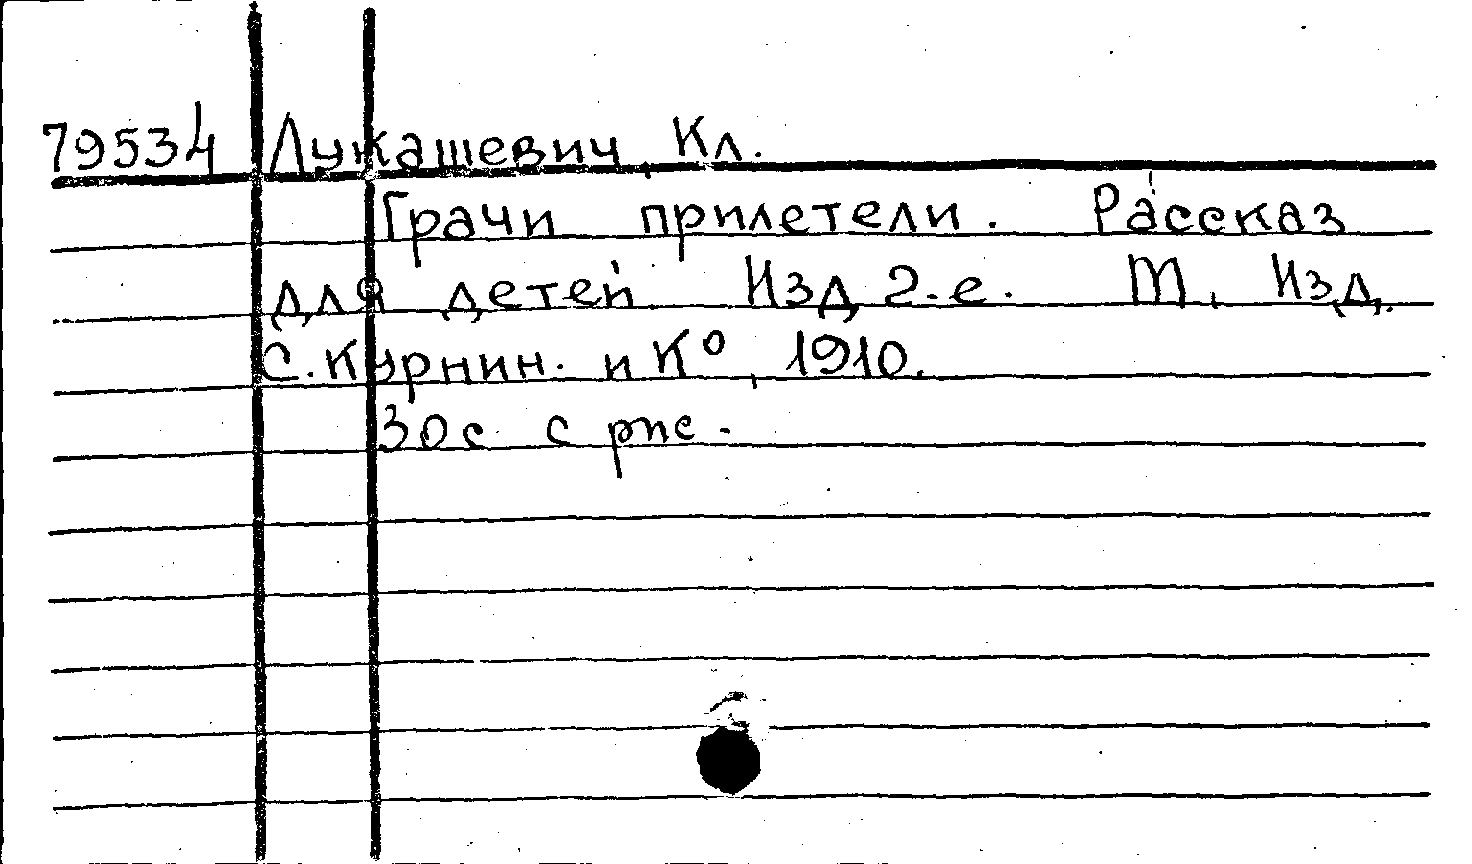 79534 Лукашевич, Кл.
Грачи прилетели. Рассказ
для детей Изд 2-е. М, Изд.
С. Курнин. и К°, 1910.
30с с рис.